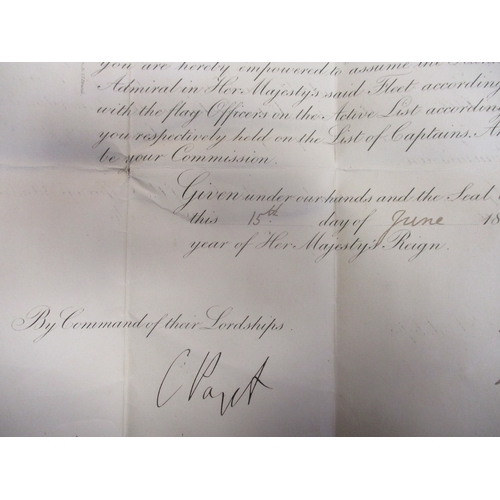 you are hereby empowered to assume the
Admiral in Her Majesty's said Fleet according
with the flag Officers on the Active List according
you respectively held on the List of Captains. A
be your Commission.
Given under our hands and the Seal
this 15th day of June 18
year of Her Majesty's Reign.
By Command of their Lordships.
C Paget